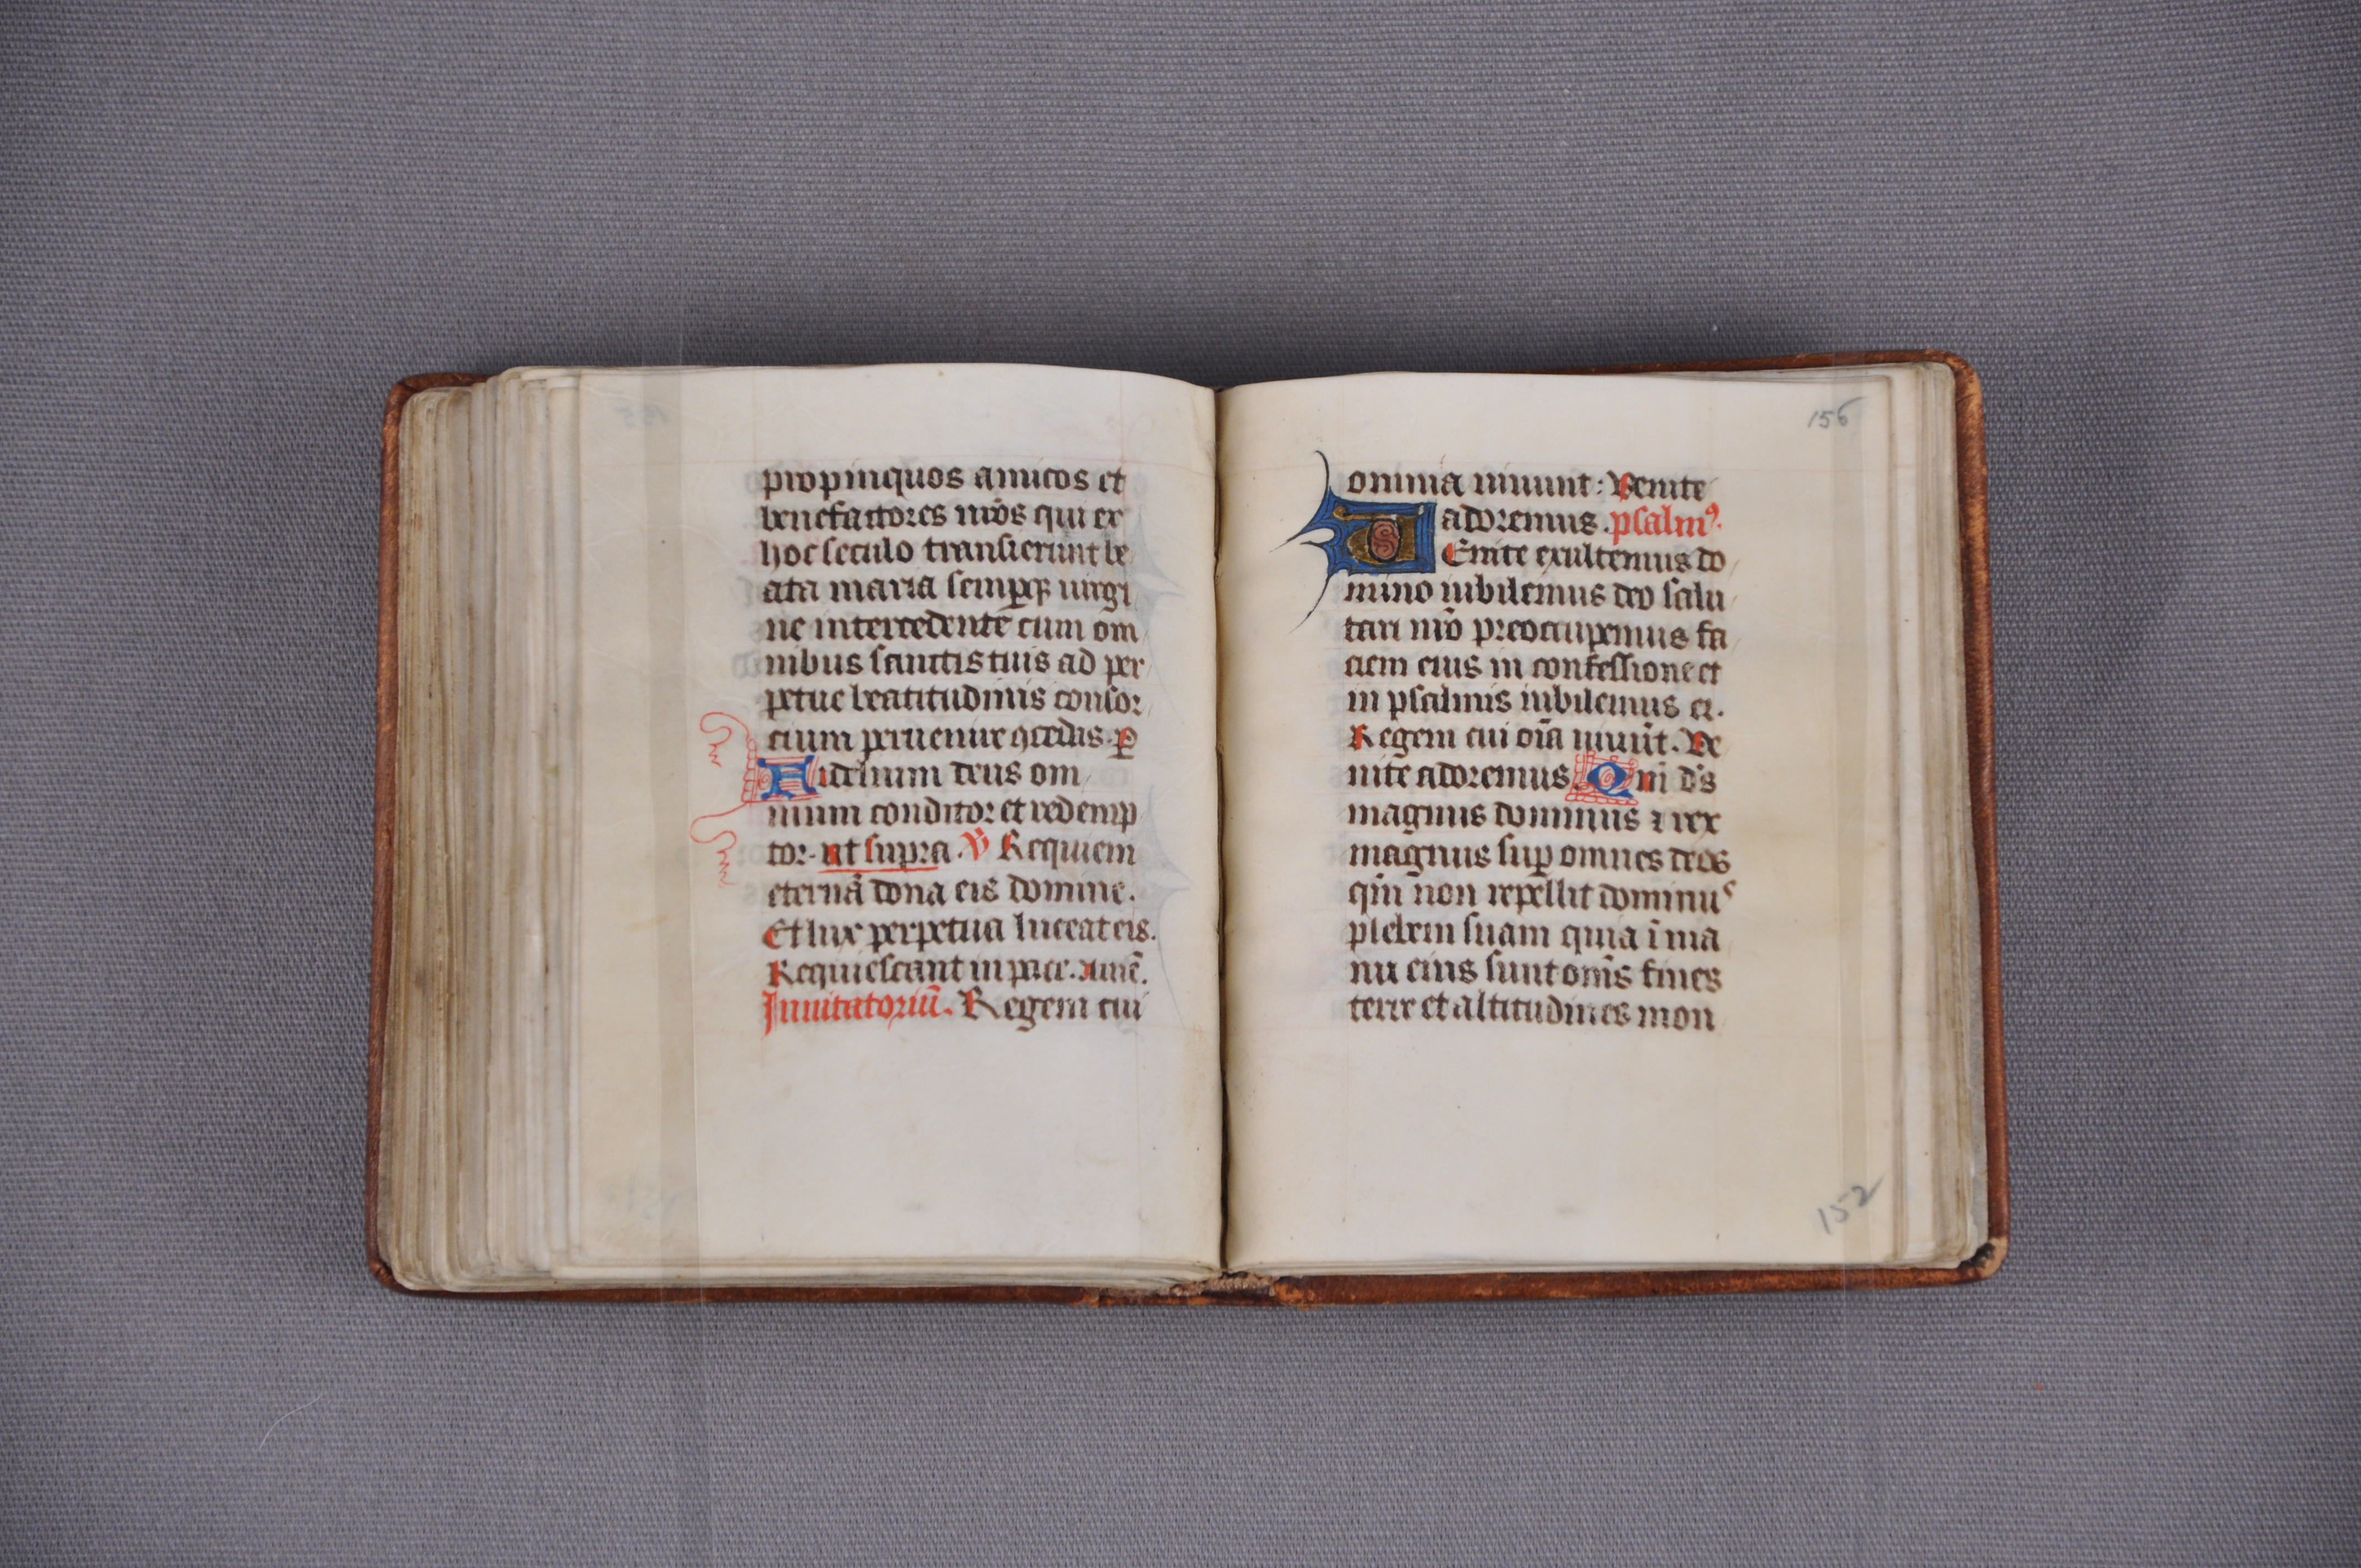 propinquos amicos et
benefactores nr̄os qui ex
hoc seculo transierunt be
ata maria semꝑqꝫ uirgi
ne intercedente cum om
nibus sanctis tuis ad per
petue beatitudinis consor
cium peruenire ꝯcedas. P
Fidelium deus om
nium conditor et redemp
tor. ut supra. V̄ Requiem
eternā dona eis domine.
Et lux perpetua luceat eis.
Requiescant in pace. Amē.
Inuitatoriū. Regem cui
156
omnia uiuunt: Venite
adoremus. psalmꝰ.
VEnite exultemus do
mino iubilemus deo salu
tari nr̄o preoccupemus fa
ciem eius in confessione et
in psalmis iubilemus ei.
Regem cui oīa uiuūt. Ve
nite adoremus. Qm̄ ds̄
magnus dominus ⁊ rex
magnus suꝑ omnes deos
qm̄ non repellit dominus
plebem suam quia ī ma
nu eius sunt om̄s fines
terre et altitudines mon
152